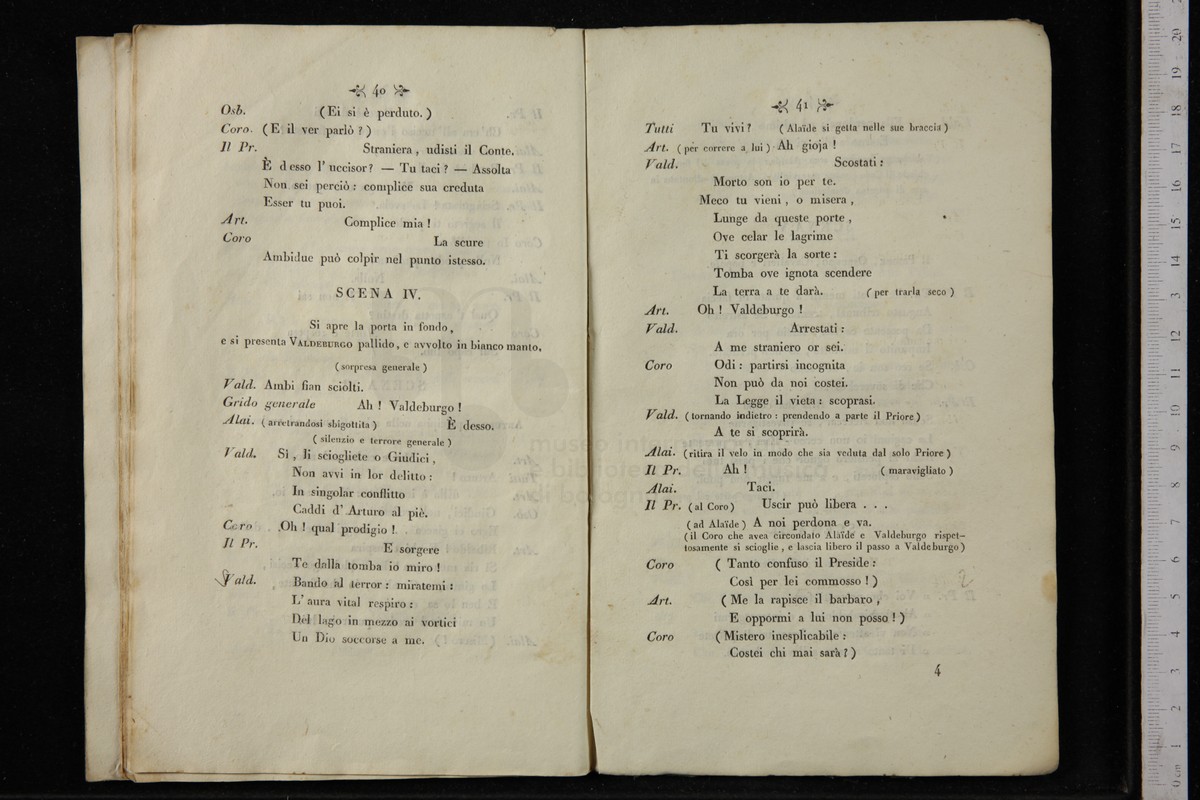 40
Osb. (Ei si è perduto.)
Coro. (E il ver parlò?)
Il Pr. Straniera, udisti il Conte.
È desso l'uccisor? — Tu taci? — Assolta
Non sei perciò: complice sua creduta
Esser tu puoi.
Art. Complice mia!
Coro La scure
Ambidue può colpir nel punto istesso.
SCENA IV.
Si apre la porta in fondo,
e si presenta VALDEBURGO pallido, e avvolto in bianco manto,
(sorpresa generale)
Vald. Ambi fian sciolti.
Grido generale Ah! Valdeburgo!
Alai. (arretrandosi sbigottita) È desso.
(silenzio e terrore generale)
Vald. Sì, li sciogliete o Giudici,
Non avvi in lor delitto:
In singolar conflitto
Caddi d'Arturo al piè.
Coro Oh! qual prodigio!
Il Pr. E sorgere
Te dalla tomba io miro!
Vald. Bando al terror: miratemi:
L'aura vital respiro:
Del lago in mezzo ai vortici
Un Dio soccorse a me.
41
Tutti Tu vivi? (Alaïde si getta nelle sue braccia)
Art. (per correre a lui) Ah gioja!
Vald. Scostati:
Morto son io per te.
Meco tu vieni, o misera,
Lunge da queste porte,
Ove celar le lagrime
Ti scorgerà la sorte:
Tomba ove ignota scendere
La terra a te darà. (per trarla seco)
Art. Oh! Valdeburgo!
Vald. Arrestati:
A me straniero or sei.
Coro Odi: partirsi incognita
Non può da noi costei.
La Legge il vieta: scoprasi.
Vald. (tornando indietro: prendendo a parte il Priore)
A te si scoprirà.
Alai. (ritira il velo in modo che sia veduta dal solo Priore)
Il Pr. Ah! (maravigliato)
Alai. Taci.
Il Pr. (al Coro) Uscir può libera . . .
(ad Alaïde) A noi perdona e va.
(il Coro che avea circondato Alaïde e Valdeburgo rispet-
tosamente si scioglie, e lascia libero il passo a Valdeburgo)
Coro (Tanto confuso il Preside:
Così per lei commosso!)
Art. (Me la rapisce il barbaro,
E oppormi a lui non posso!)
Coro (Mistero inesplicabile:
Costei chi mai sarà?)
4
museo internazionale
e biblioteca della musica
di bologna
0 cm 1 2 3 4 5 6 7 8 9 10 11 12 13 14 15 16 17 18 19 20